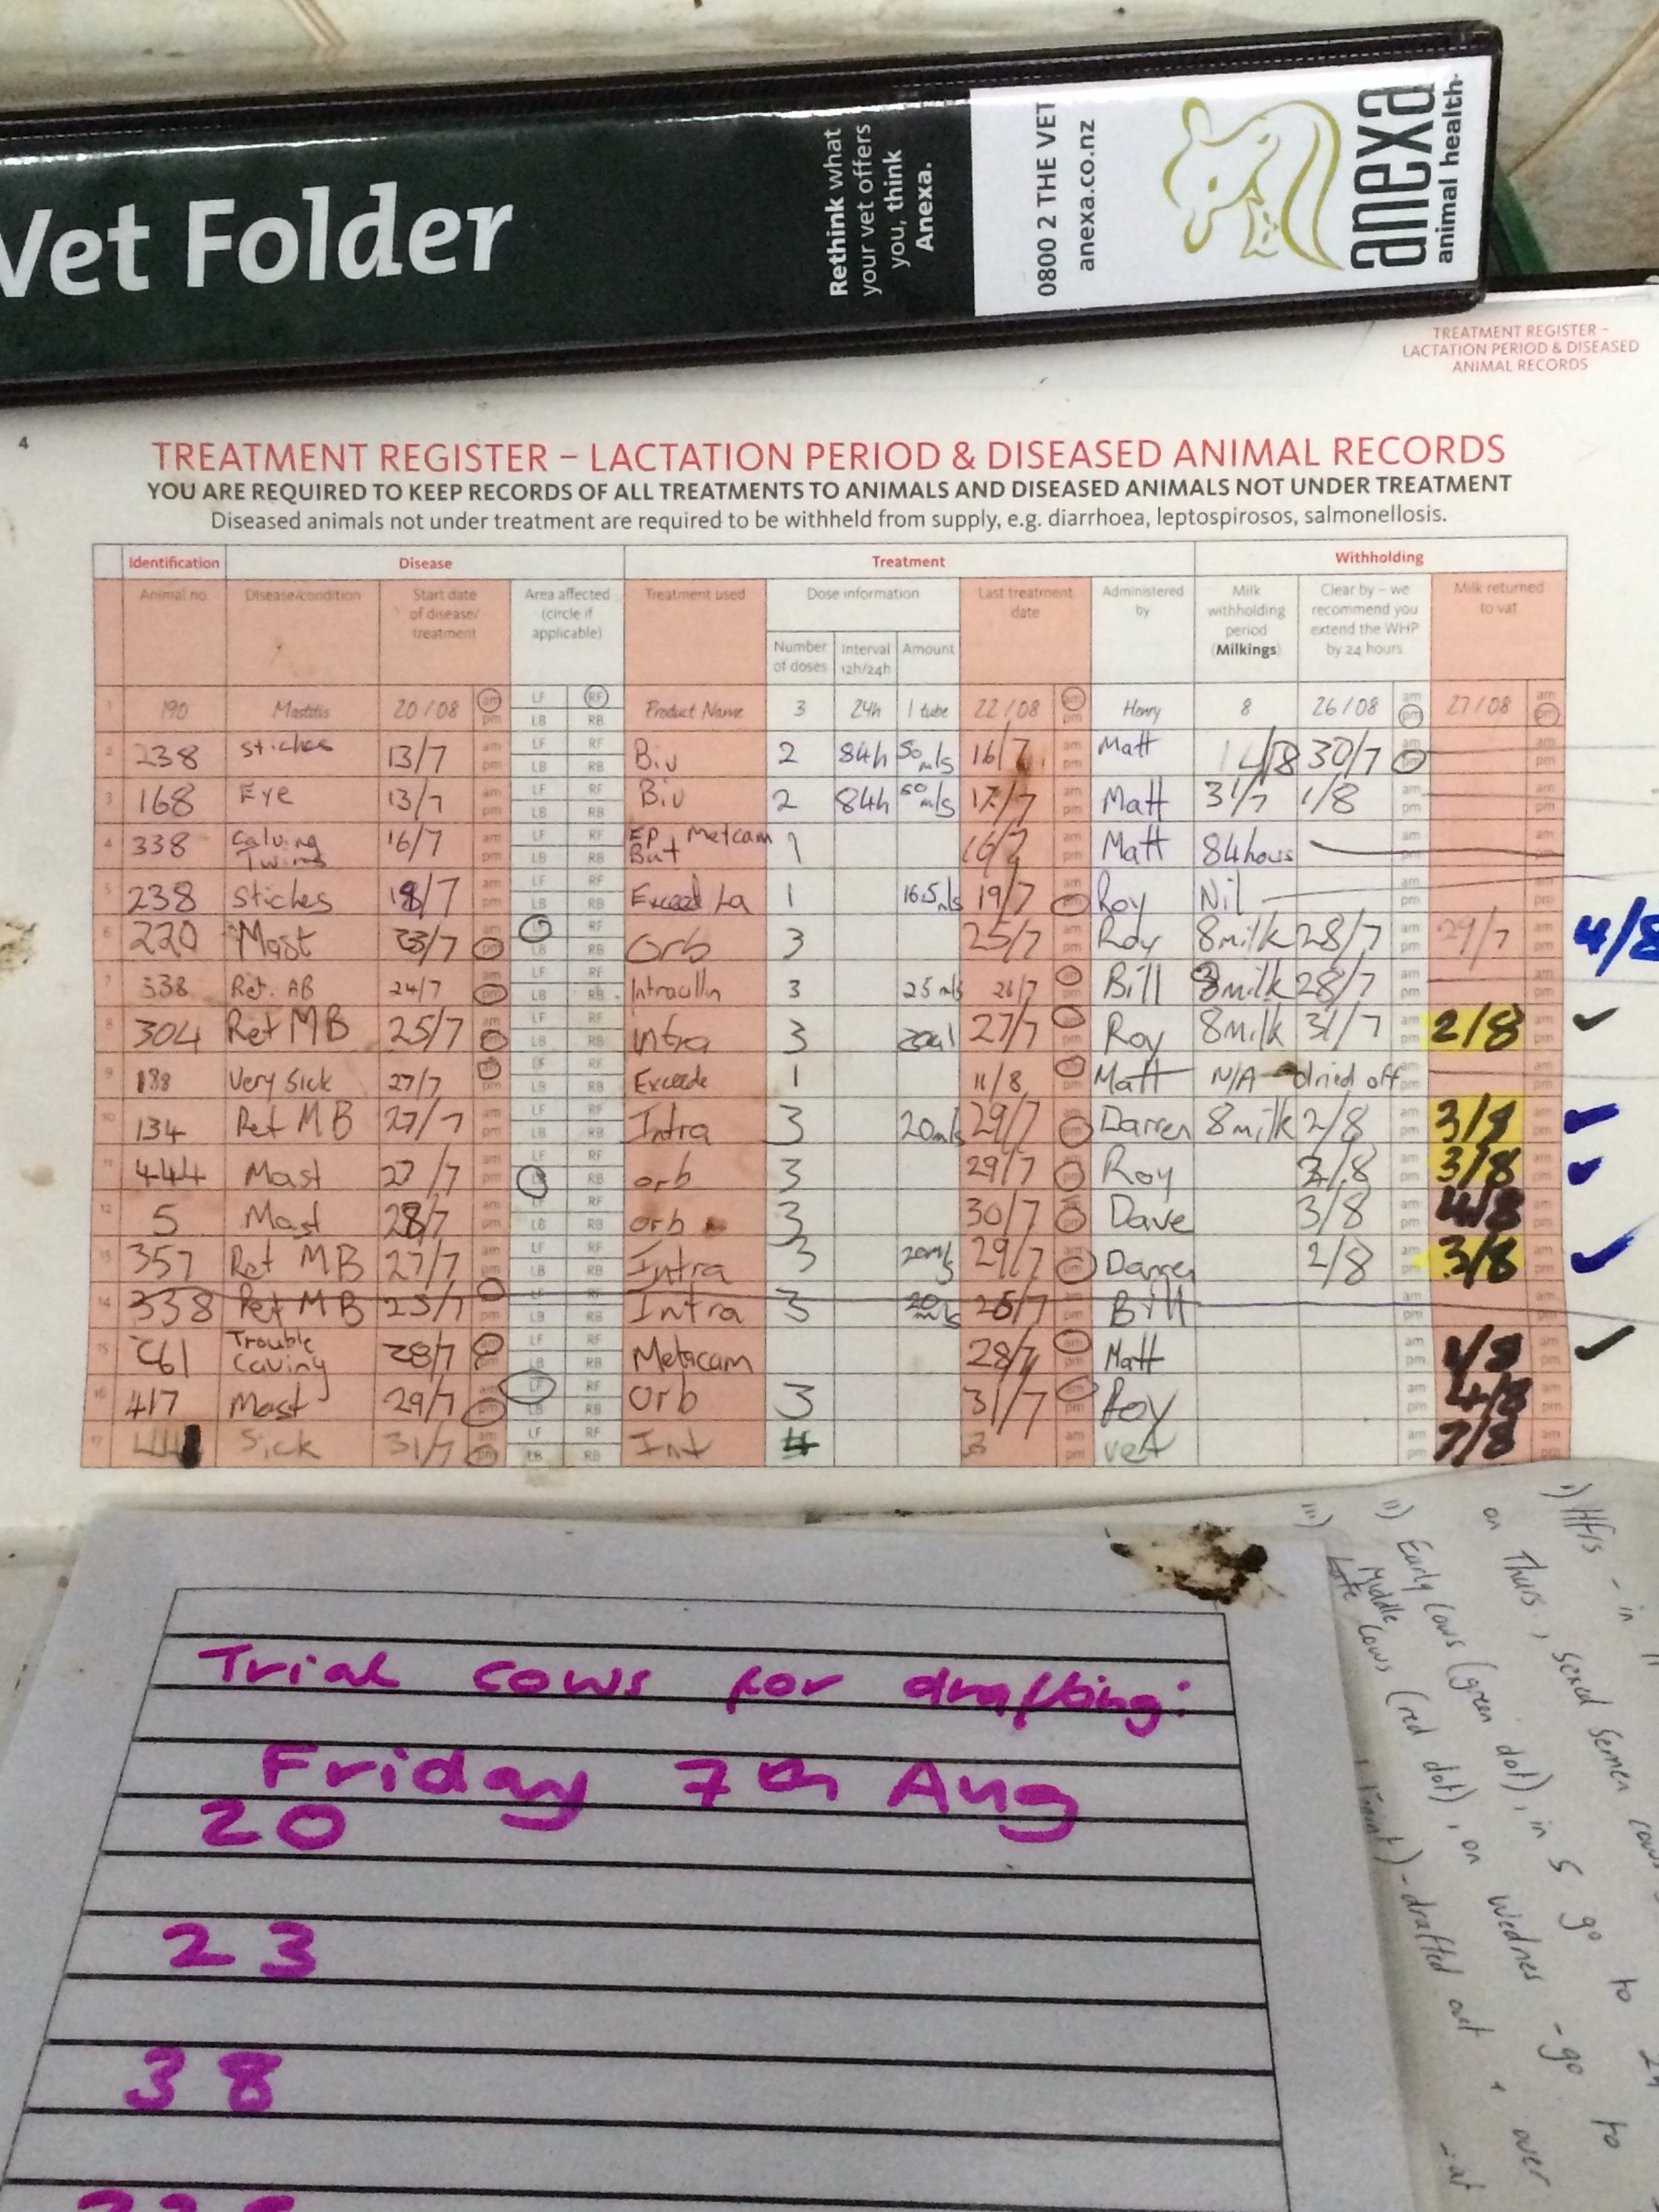 Vet Folder
Rethink what
your vet offers
you, think
Anexa.
0800 2 THE VET
anexa.co.nz
anexa
animal health
TREATMENT REGISTER –
LACTATION PERIOD & DISEASED
ANIMAL RECORDS
4
TREATMENT REGISTER – LACTATION PERIOD & DISEASED ANIMAL RECORDS
YOU ARE REQUIRED TO KEEP RECORDS OF ALL TREATMENTS TO ANIMALS AND DISEASED ANIMALS NOT UNDER TREATMENT
Diseased animals not under treatment are required to be withheld from supply, e.g. diarrhoea, leptospirosos, salmonellosis.
Identification Disease Treatment Withholding
Animal no. Disease/condition Start date of disease/ treatment Area affected (circle if applicable) Treatment used Dose information Last treatment date Administered by Milk withholding period (Milkings) Clear by – we recommend you extend the WHP by 24 hours Milk returned to vat
Number of doses Interval 12h/24h Amount
1 190 Mastitis 20/08 am pm LF RF LB RB Product Name 3 24h 1 tube 22/08 am pm Henry 8 26/08 am pm 27/08 am pm
2 238 Stiches 13/7 am pm LF RF LB RB Biv 2 84h 50 mls 16/7 am pm Matt 1/8 30/7 am pm
3 168 Eye 13/7 am pm LF RF LB RB Biv 2 84h 50 mls 17/7 am pm Matt 31/7 1/8 am pm
4 338 Calving Twins 16/7 am pm LF RF LB RB Metcam 1 16/7 Matt 84hours am pm
5 238 Stiches 18/7 am pm LF RF LB RB Exceed La 1 16.5mls 19/7 am Roy Nil am pm
6 220 Mast 23/7 am pm RF LB RB Orb 3 25/7 am pm Roy 8milk 28/7 am pm 29/7 am pm 4/8
7 338 Ret. AB 24/7 am pm LF RF LB RB Intracillin 3 25 mls 26/7 am pm Bill 8milk 28/7 am pm
8 304 Ret MB 25/7 am pm LF RF LB RB Intra 3 27/7 am pm Roy 8milk 31/7 am pm 2/8 am pm
9 188 Very Sick 27/7 am pm LF RF LB RB Exceede 1 11/8 am pm Matt N/A dried off pm
10 134 Ret MB 27/7 am pm LF RF LB RB Intra 3 20mls 29/7 am pm Darren 8milk 2/8 am pm 3/8 am pm
11 444 Mast 27/7 am pm LF RF LB RB orb 3 29/7 am pm Roy 2/8 am pm 3/8 am pm
12 5 Mast 28/7 am pm LF RF LB RB orb 3 30/7 am pm Dave 3/8 am pm 4/8 am pm
13 357 Ret MB 27/7 am pm LF RF LB RB Intra 3 20mls 29/7 am pm Darren 2/8 am pm 3/8 am pm
14 338 Ret MB 25/7 am pm LF RF LB RB Intra 3 Bill am pm
15 Trouble Caving 28/7 LF RF LB RB Metacam 28/7 am pm Matt am pm
16 417 Mast 29/7 am pm LF RF LB RB Orb 3 31/7 am pm Roy am pm 4/8 am pm
17 Sick 31/7 am pm LF RF LB RB Int am pm vet am pm 7/8 am pm
Trial cows for drafting:
Friday 7th Aug
20
23
38
i) Hfrs - in
on Thurs, Sexed Semen cows
ii) Early Cows (green dot), in 5 go to
Middle Cows (red dot), on Wednes - go to
iii) Late
- drafted out + over
- at